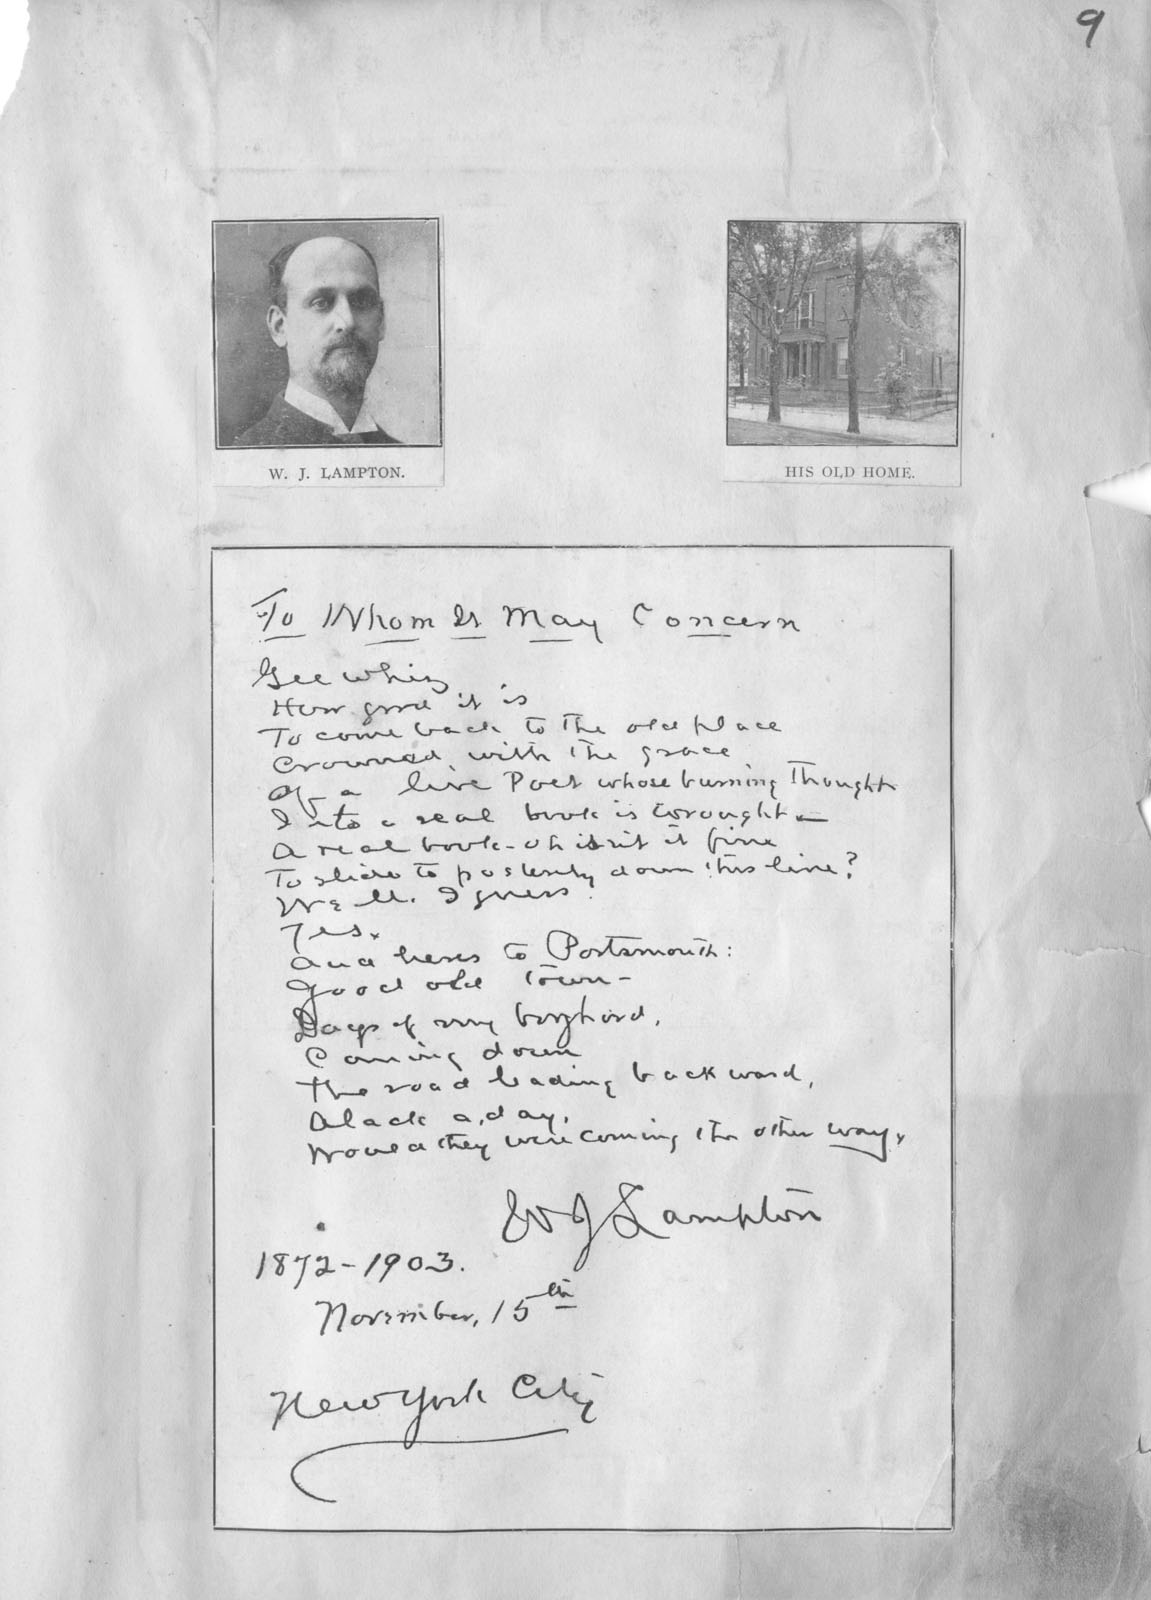 9
W. J. LAMPTON.
HIS OLD HOME.
To Whom It May Concern
Gee whiz
How good it is
To come back to the old place
Crowned with the grace
Of a live Poet whose burning Thought
Into a real book is wrought —
A real book - oh isn't it fine
To slide to posterity down this line?
Well. I guess.
Yes.
And heres to Portsmouth:
Good old Town -
Days of my boyhood,
Coming down
The road leading backward,
Alack a, day,
Would they were coming the other way.
W J Lampton
1872-1903.
November, 15th
New York City